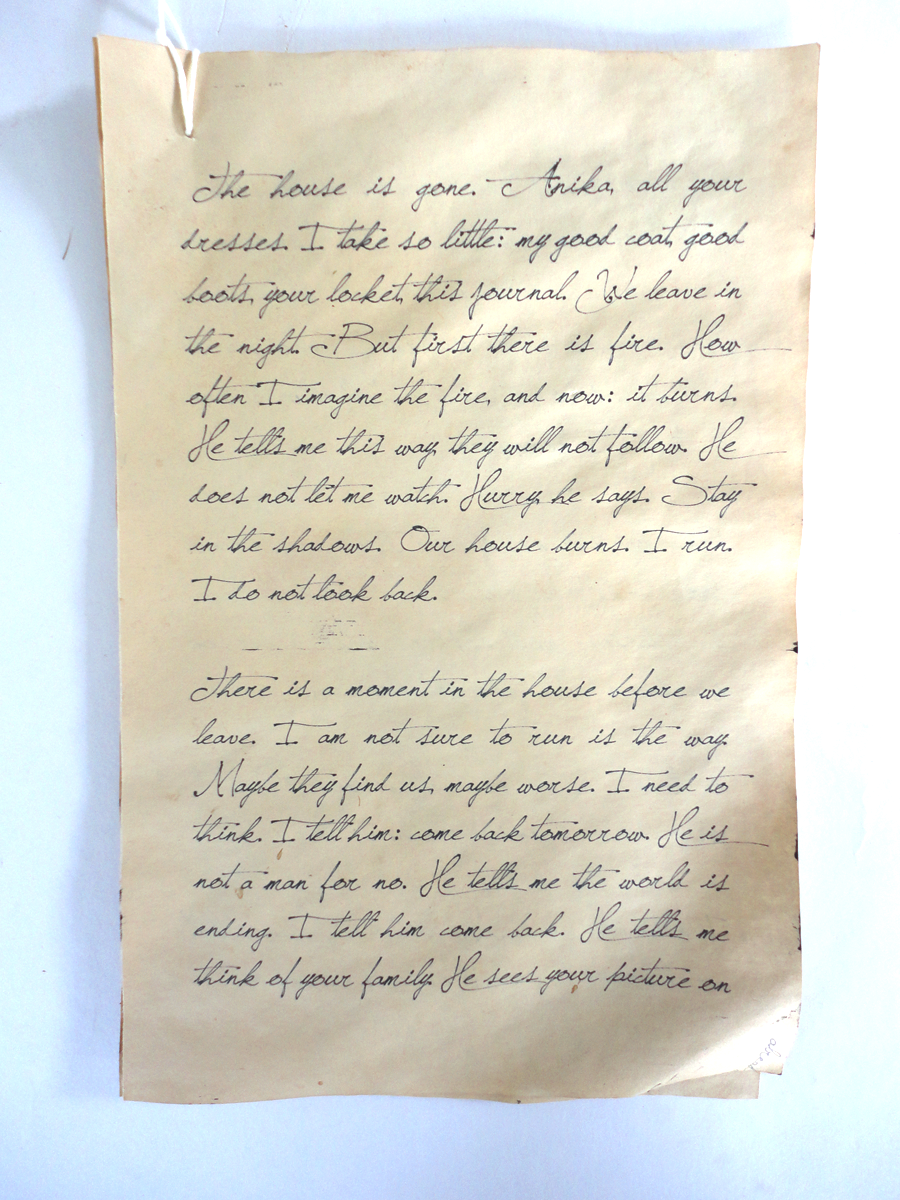 The house is gone. Anika, all your
dresses. I take so little: my good coat, good
boots, your locket, this journal. We leave in
the night. But first there is fire. How
often I imagine the fire, and now: it burns.
He tells me this way, they will not follow. He
does not let me watch. Hurry, he says. Stay
in the shadows. Our house burns. I run.
I do not look back.
There is a moment in the house before we
leave. I am not sure to run is the way.
Maybe they find us, maybe worse. I need to
think. I tell him: come back tomorrow. He is
not a man for no. He tells me the world is
ending. I tell him come back. He tells me
think of your family. He sees your picture on